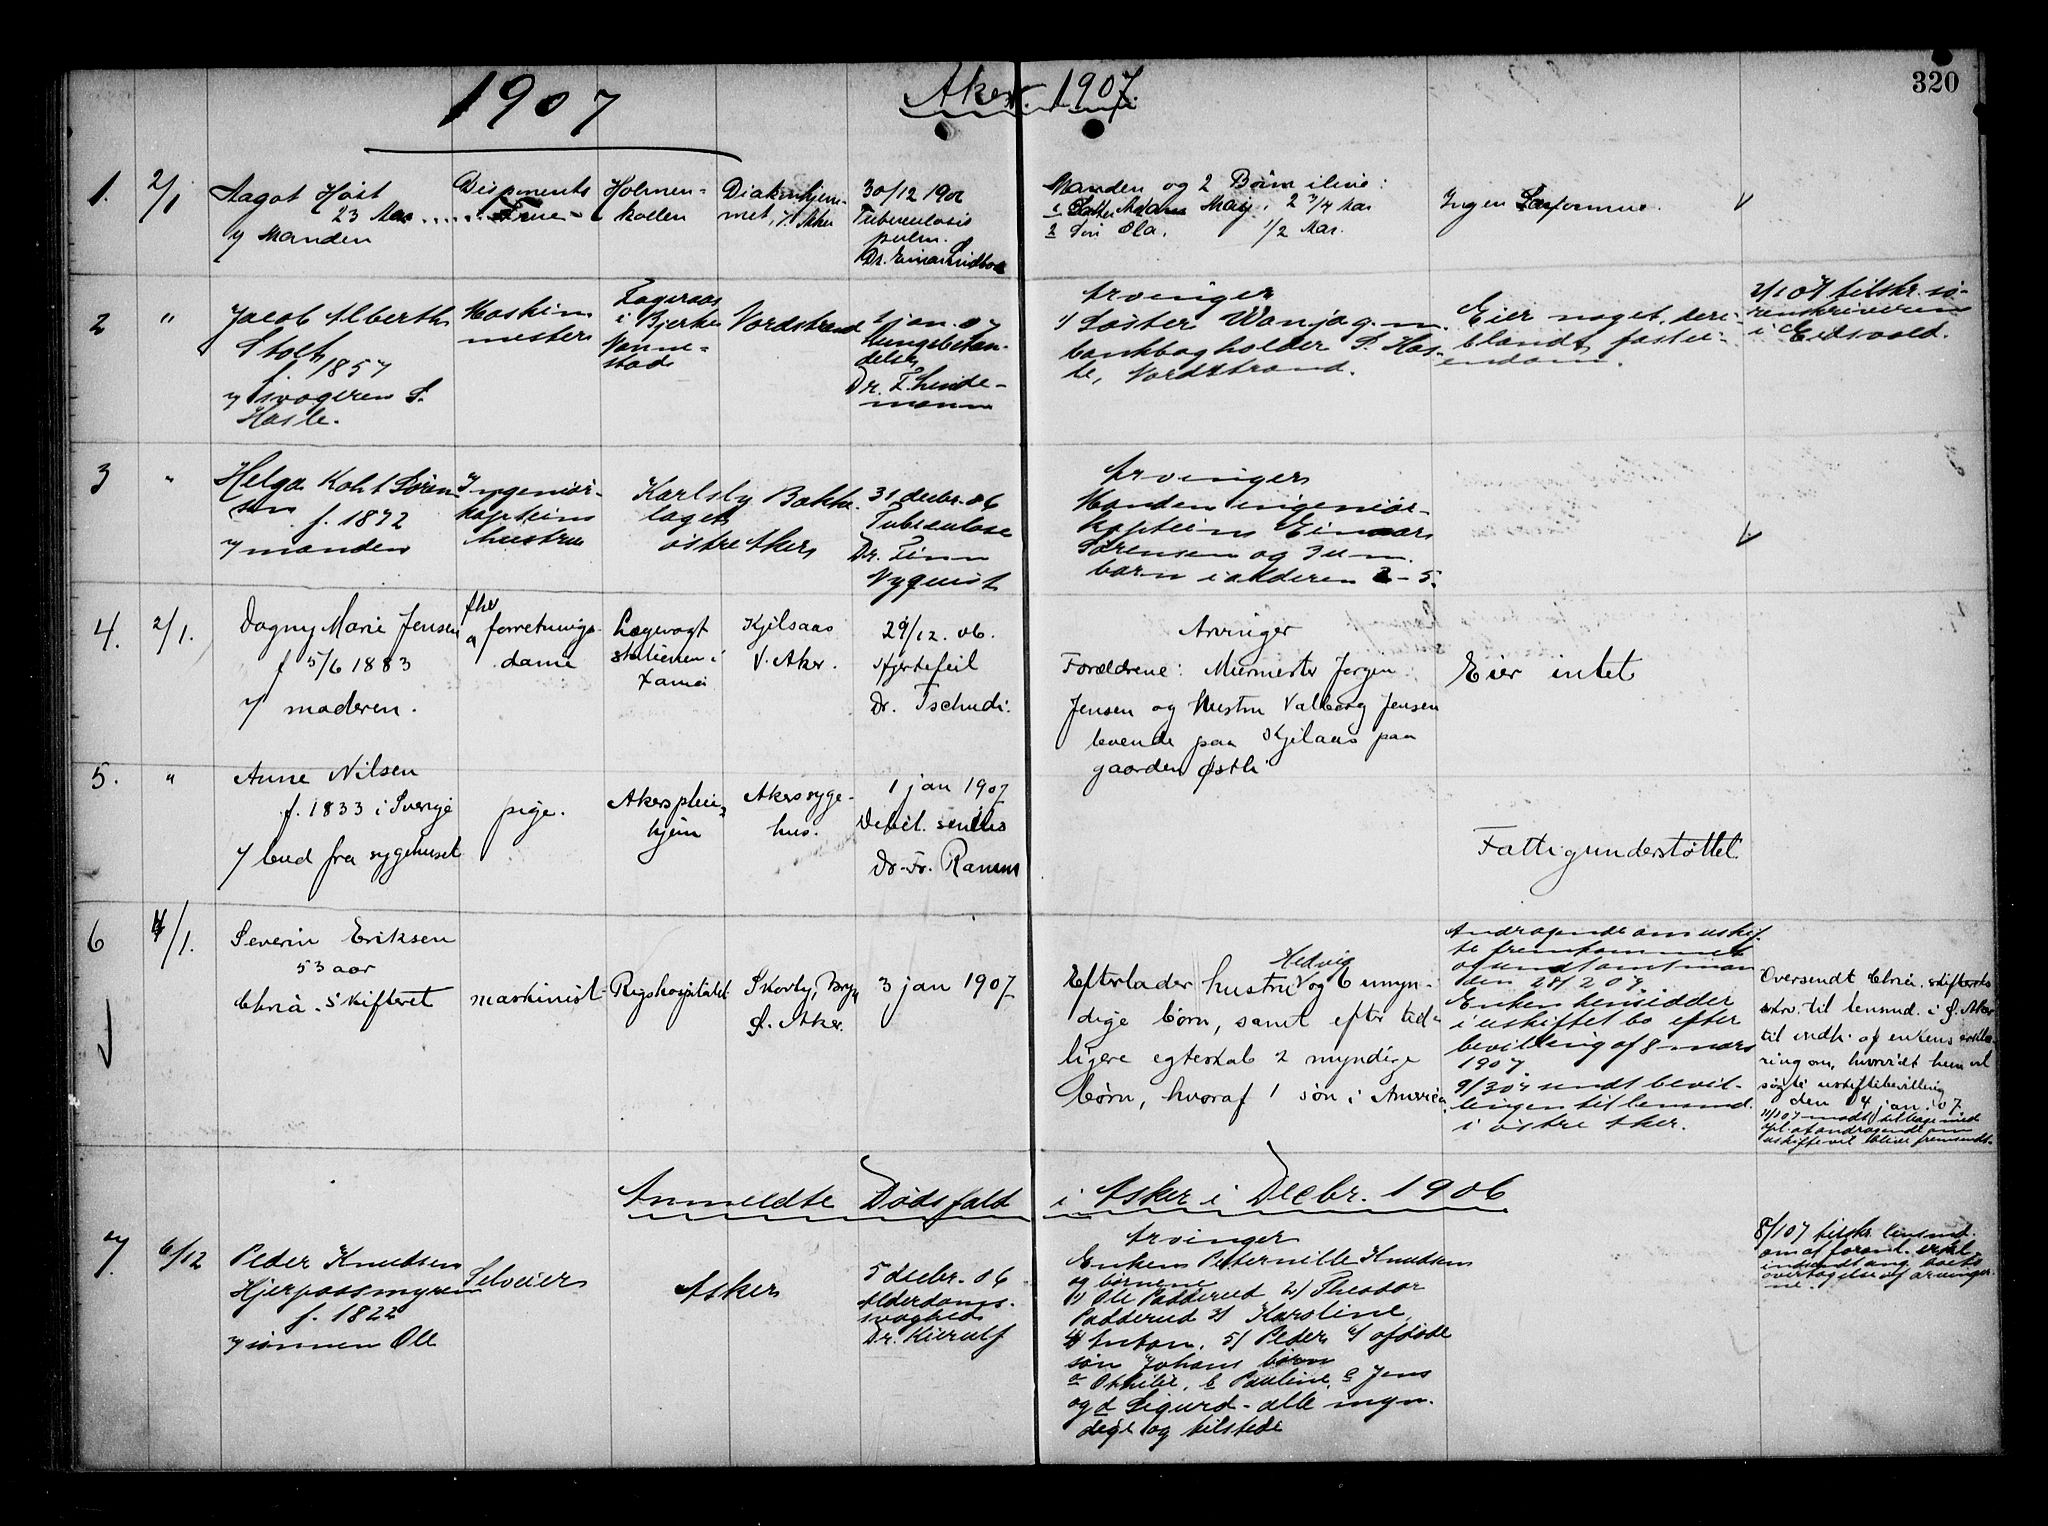 320
1907
Aker. 1907.
1.
2/1
Aagot Høst
23 Aar
v/ Manden
Disponents
Frue
Holmen-
kollen
Diakonhjem-
met, V. Aker
30/12 1906
Tuberculosis
pulm.
Dr. Einar
Manden og 2 Børn ilive:
1 Datter May, 2 3/4 Aar
2 Søn Ola. 1/2 Aar.
Ingen Særformue.
2
"
Jacob Alberth
Stolt
f. 1857
v/ svogeren P.
Hasle.
Maskin-
mester
Fageraas
i Bjerke
Nanne-
stad
Nordstrand
1 jan. 07
Lungebetæn-
delse
Dr. F. Linde-
mann
Arvinger
1/ Søster Wanja g. m.
bankbogholder P. Has-
le, Nordstrand.
Eier noget, deri-
blandt fastei-
endom.
2/1 07 tilskr. so-
renskriveren
i Eidsvold.
3
"
Helga Koht Søren-
sen f. 1872
v/ manden
Ingeniør-
kapteins
hustru
Karlsby Bakke-
laget
østre Aker
31 decbr. 06
Tuberculose
Dr. Finn
Nyquist
Arvinger
Manden ingeniør-
kaptein Einar
Sørensen og 3 um.
barn i alderen 2-5.
4.
2/1.
Dagny Marie Jensen
f 5/6 1883
v/ moderen.
fhv
forretnings-
dame
Lægevagt
stationen i
Kjelsaas
V. Aker.
29/12. 06.
Hjertefeil
Dr. Tschudi.
Arvinger
Forældrene: Murmester Jørgen
Jensen og Hustru Valborg Jensen
boende paa Kjelaas paa
gaarden Østli
Eier intet
5.
"
Anne Nilsen
f. 1833 i Sverige
v/ bud fra sygehuset
pige.
Akerspleie-
hjem
Akers syge-
hus.
1 jan 1907
Debil. senilis
Dr. Fr. Ramm
Fattigunderstøttet.
6
4/1.
Severin Eriksen
53 aar
Chria. Skifteret
maskinist
Rigshospitalet
Skovly, Bryn
Ø. Aker.
3 jan 1907
Hedvig
Efterlader hustru og 6 umyn-
dige børn, samt efter tid-
ligere egteskab 2 myndige
børn, hvoraf 1 søn i Amerika.
Andragende om uskif-
te fremkommet
og sendt amtman
den 28/2 07.
Enken hensidder
i uskiftet bo efter
bevilling af 8 mars
1907
9/3 07 sendt bevil-
lingen til lensmd.
i østre Aker.
Oversendt Chria. skifterets
skriv. til lensmd. i Ø. Aker
til indh. af enkens erklæ-
ring om, hvorvidt hun vil
søge uskiftebevilling
den 4 jan. 07.
11/1 07 modt. tilbage med
opl. at andragende om
uskifte vil bliver fremsendt.
Anmeldte Dødsfald i Asker i Decbr. 1906
7.
6/12
Peder Knudsen
Hjerpaasmyren
f. 1822
v/ sønnen Ole
Selveier
Asker
5 decbr. 06
Alderdoms-
svaghed
Dr. Kierulf
Arvinger
Enken Peternille Knudsen
og børnene
1/ Ole Padderud 2/ Theodor
Padderud 3/ Karoline,
4/ Anton, 5/ Peder 6/ afdøde
søn Johans børn
a Othilie, b Pauline, c Jens
og d Sigurd - alle myn-
dige og tilstede
8/1 07 tilskr. lensmd.
om at foranl. erkl.
indsendt ang. boets
overtagelse af arvinger-
ne.